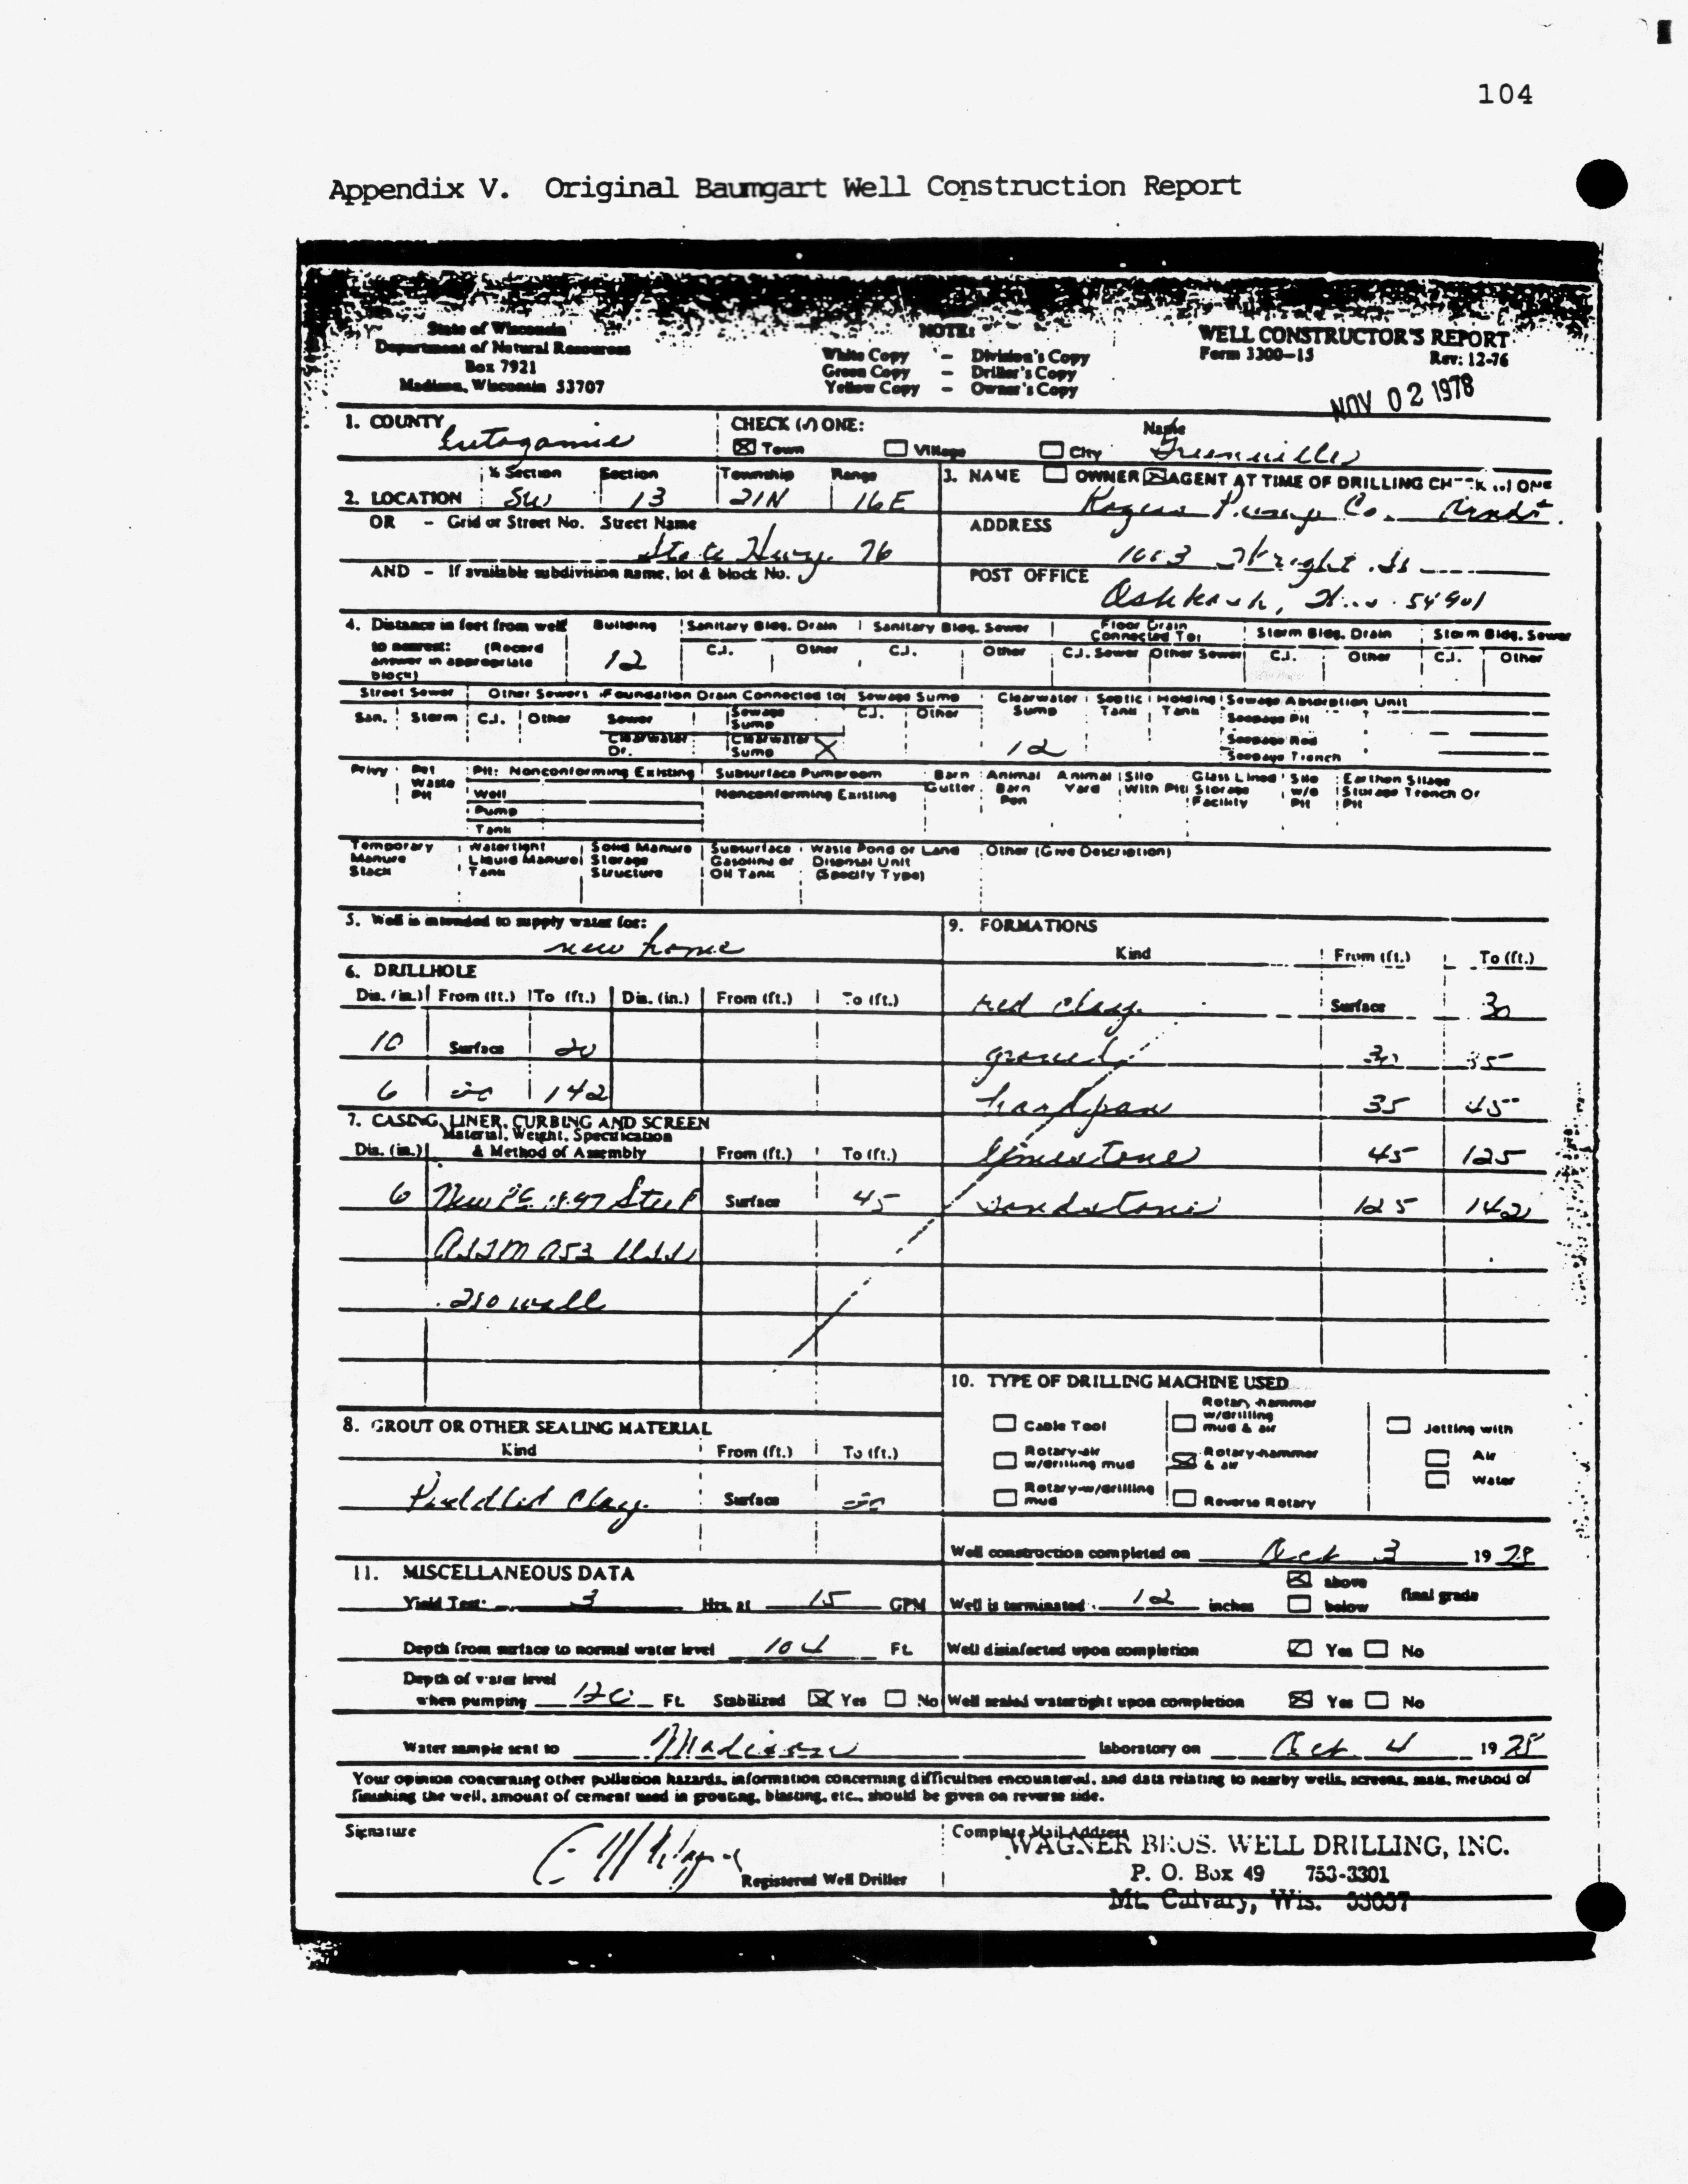 104
Appendix V. Original Baumgart Well Construction Report
State of Wisconsin
Department of Natural Resources
Box 7921
Madison, Wisconsin 53707
NOTE:
White Copy – Division's Copy
Green Copy – Driller's Copy
Yellow Copy – Owner's Copy
WELL CONSTRUCTOR'S REPORT
Form 3300-15 Rev: 12-76
NOV 02 1978
1. COUNTY CHECK (√) ONE: Name
Town Village City Greenville
2. LOCATION ¼ Section Section Township Range
SW 13 21N 16E
3. NAME OWNER AGENT AT TIME OF DRILLING CHECK (√) ONE
Pump Co.
OR – Grid or Street No. Street Name
State Hwy. 76
ADDRESS
AND – If available subdivision name, lot & block No.
POST OFFICE
Oshkosh, 54901
4. Distance in feet from well to nearest: (Record answer in appropriate block)
Building Sanitary Bldg. Drain Sanitary Bldg. Sewer Floor Drain Connected To: Storm Bldg. Drain Storm Bldg. Sewer
C.I. Other C.I. Other C.I. Sewer Other Sewer C.I. Other C.I. Other
12
Street Sewer Other Sewers Foundation Drain Connected to Sewage Sump Clearwater Sump Septic Tank Holding Tank Sewage Absorption Unit
San. Storm C.I. Other Sewer Sewage Sump C.I. Other Seepage Pit
Clearwater Dr. Clearwater Sump X 12 Seepage Bed
Seepage Trench
Privy Pet Waste Pit Pit: Nonconforming Existing Subsurface Pumproom Barn Gutter Animal Barn Pen Animal Yard Silo With Pit Glass Lined Storage Facility Silo w/o Pit Earthen Silage Storage Trench Or Pit
Well Nonconforming Existing
Pump
Tank
Temporary Manure Stack Watertight Liquid Manure Tank Solid Manure Storage Structure Subsurface Gasoline or Oil Tank Waste Pond or Land Disposal Unit (Specify Type) Other (Give Description)
5. Well is intended to supply water for:
new home
6. DRILLHOLE
Dia. (in.) From (ft.) To (ft.) Dia. (in.) From (ft.) To (ft.)
10 Surface 20
6 20 142
7. CASING, LINER, CURBING AND SCREEN
Material, Weight, Specification
Dia. (in.) & Method of Assembly From (ft.) To (ft.)
6 New PE 18.97 Steel Surface 45
ASTM A53
wall
8. GROUT OR OTHER SEALING MATERIAL
Kind From (ft.) To (ft.)
Puddled Clay Surface 20
9. FORMATIONS
Kind From (ft.) To (ft.)
red clay Surface 30
gravel 30 35
hardpan 35 45
limestone 45 125
sandstone 125 142
10. TYPE OF DRILLING MACHINE USED
Cable Tool Rotary-hammer w/drilling mud & air Jetting with
Rotary-air w/drilling mud Rotary-hammer & air Air
Rotary-w/drilling mud Reverse Rotary Water
Well construction completed on Oct 3 1978
11. MISCELLANEOUS DATA
Yield Test: 3 Hrs. at 15 GPM
Well is terminated 12 inches above below final grade
Depth from surface to normal water level 104 Ft.
Well disinfected upon completion Yes No
Depth of water level
when pumping 120 Ft. Stabilized Yes No
Well sealed watertight upon completion Yes No
Water sample sent to Madison laboratory on Oct 4 1978
Your opinion concerning other pollution hazards, information concerning difficulties encountered, and data relating to nearby wells, screens, seals, method of
finishing the well, amount of cement used in grouting, blasting, etc., should be given on reverse side.
Signature
Registered Well Driller
Complete Mail Address
WAGNER BROS. WELL DRILLING, INC.
P. O. Box 49 753-3301
Mt. Calvary, Wis. 53057